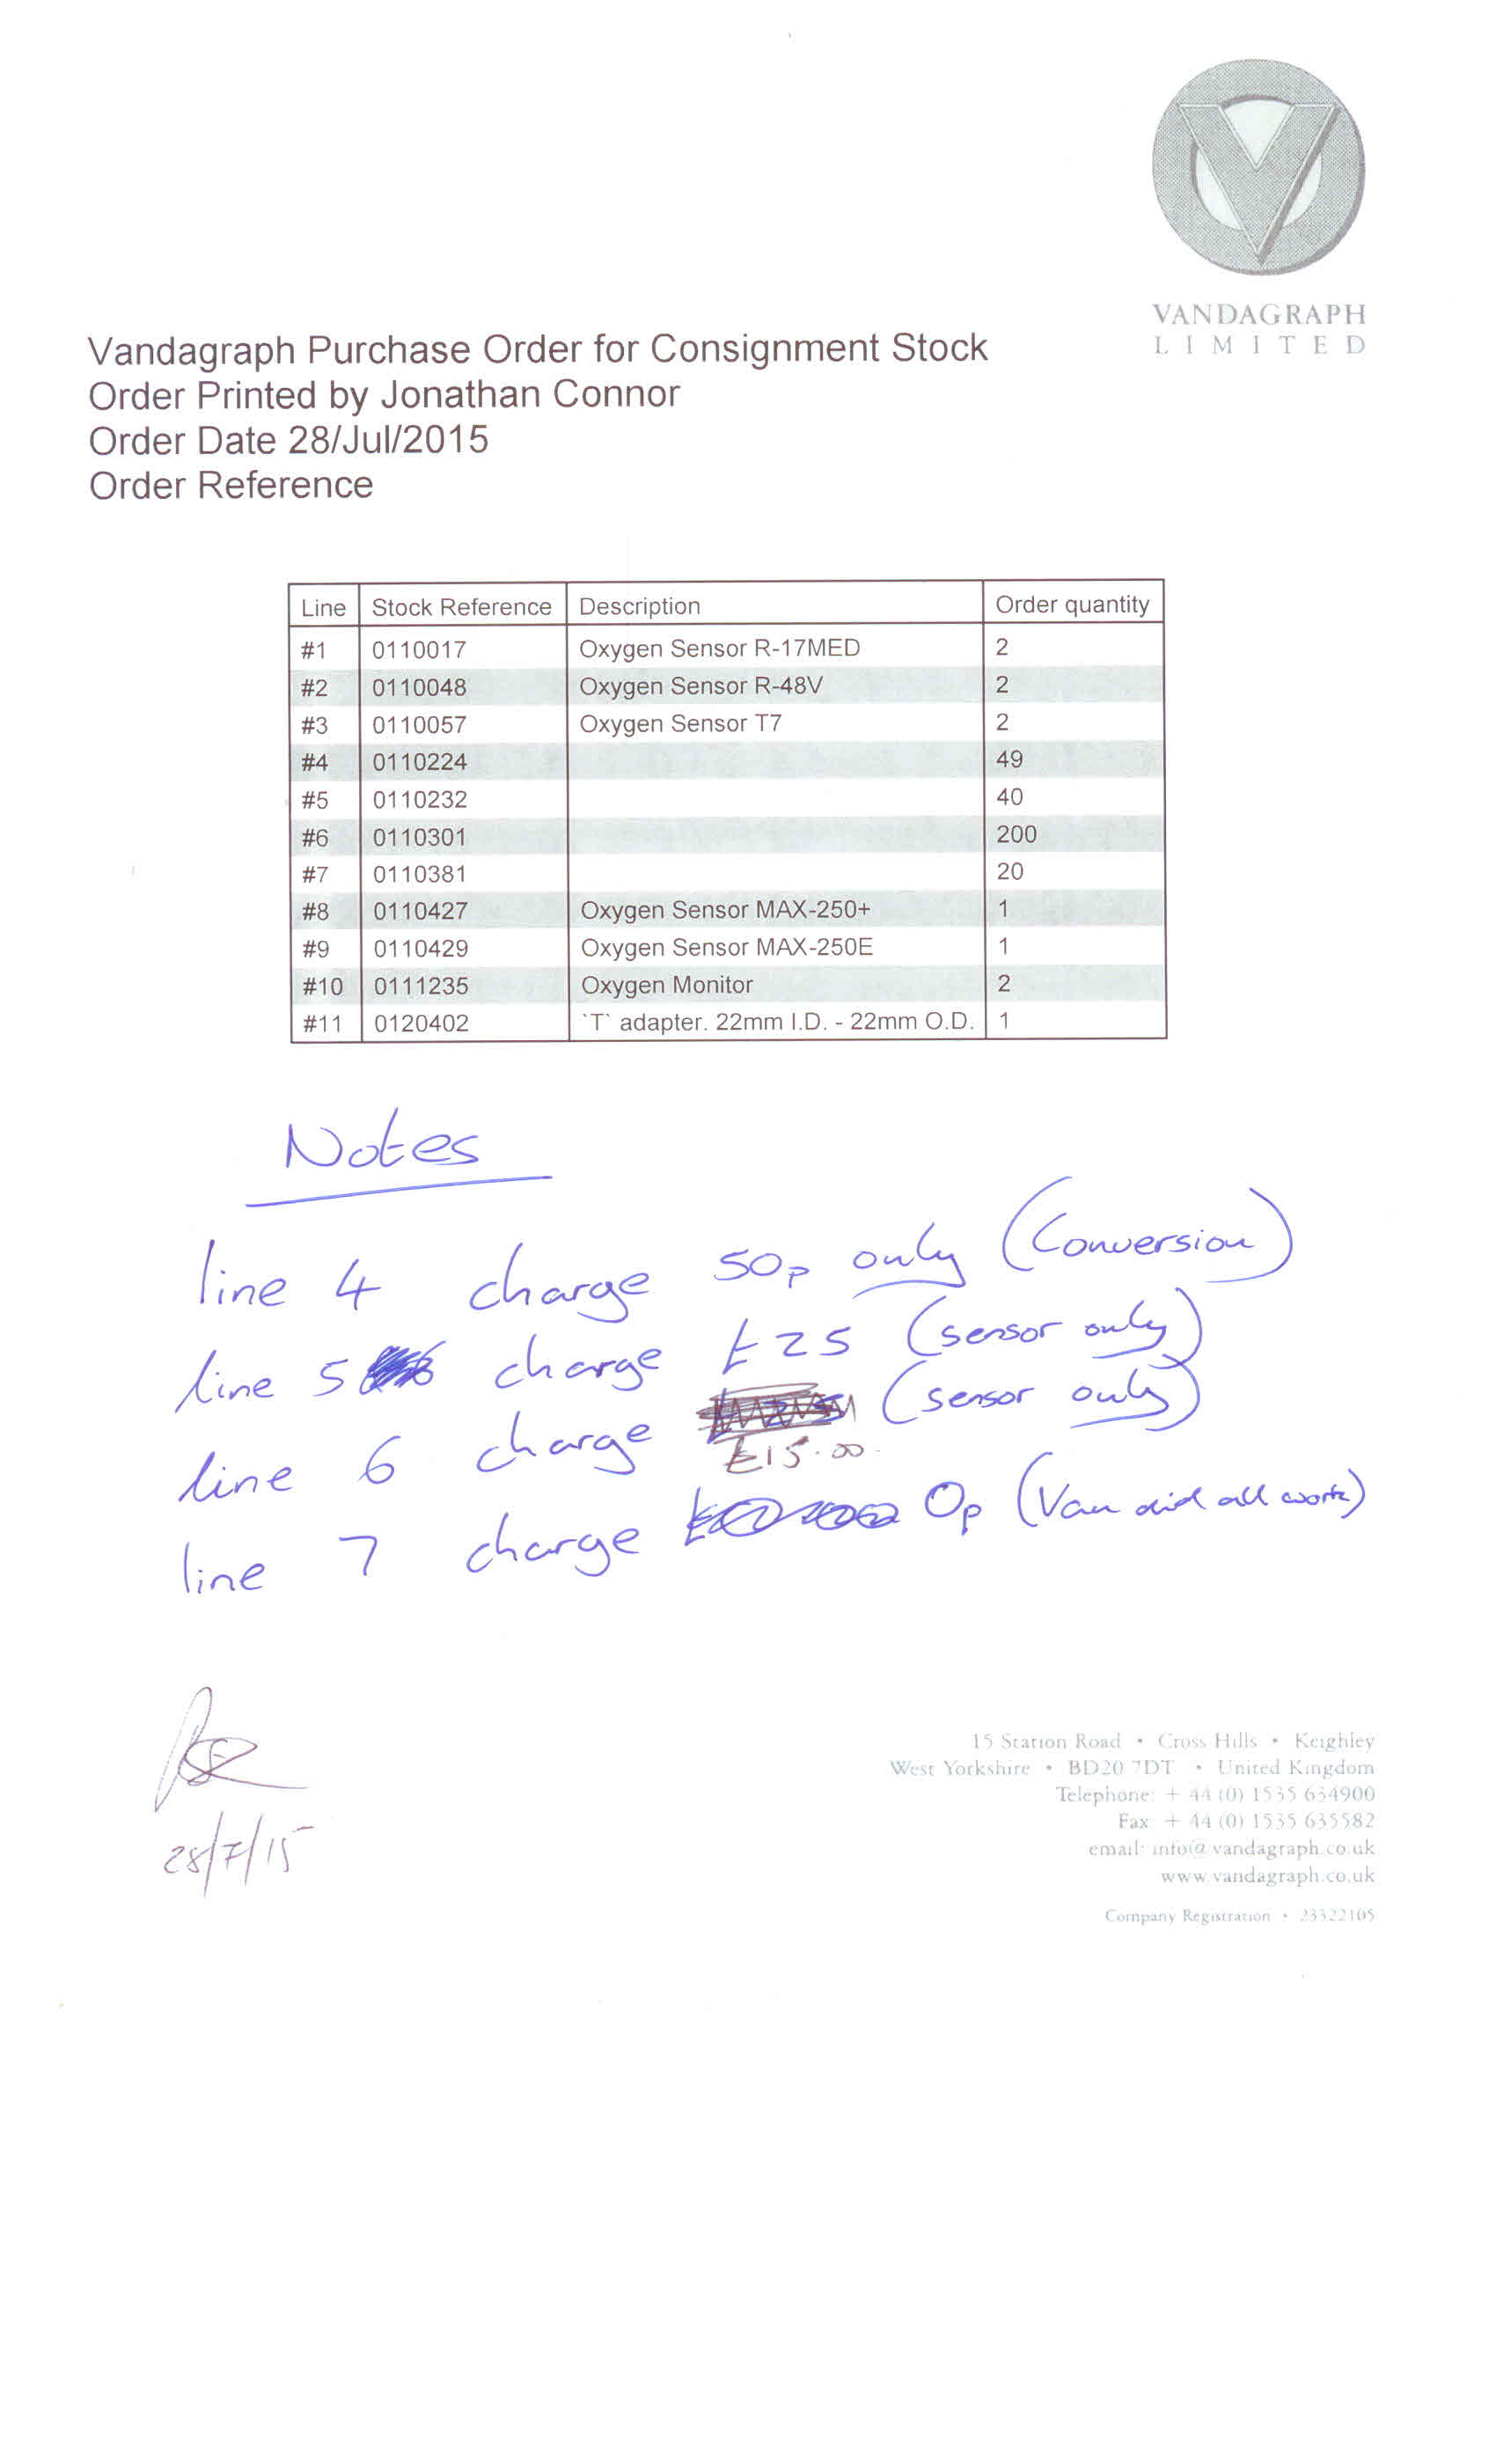 VANDAGRAPH
LIMITED
Vandagraph Purchase Order for Consignment Stock
Order Printed by Jonathan Connor
Order Date 28/Jul/2015
Order Reference
Line Stock Reference Description Order quantity
#1 0110017 Oxygen Sensor R-17MED 2
#2 0110048 Oxygen Sensor R-48V 2
#3 0110057 Oxygen Sensor T7 2
#4 0110224 49
#5 0110232 40
#6 0110301 200
#7 0110381 20
#8 0110427 Oxygen Sensor MAX-250+ 1
#9 0110429 Oxygen Sensor MAX-250E 1
#10 0111235 Oxygen Monitor 2
#11 0120402 `T` adapter. 22mm I.D. - 22mm O.D. 1
Notes
line 4 charge 50p only (Conversion)
line 5 charge £25 (sensor only)
line 6 charge (sensor only)
£15.00
line 7 charge 0p (Van did all work)
28/7/15
15 Station Road • Cross Hills • Keighley
West Yorkshire • BD20 7DT • United Kingdom
Telephone: + 44 (0) 1535 634900
Fax: + 44 (0) 1535 635582
email: info@vandagraph.co.uk
www.vandagraph.co.uk
Company Registration • 23322105